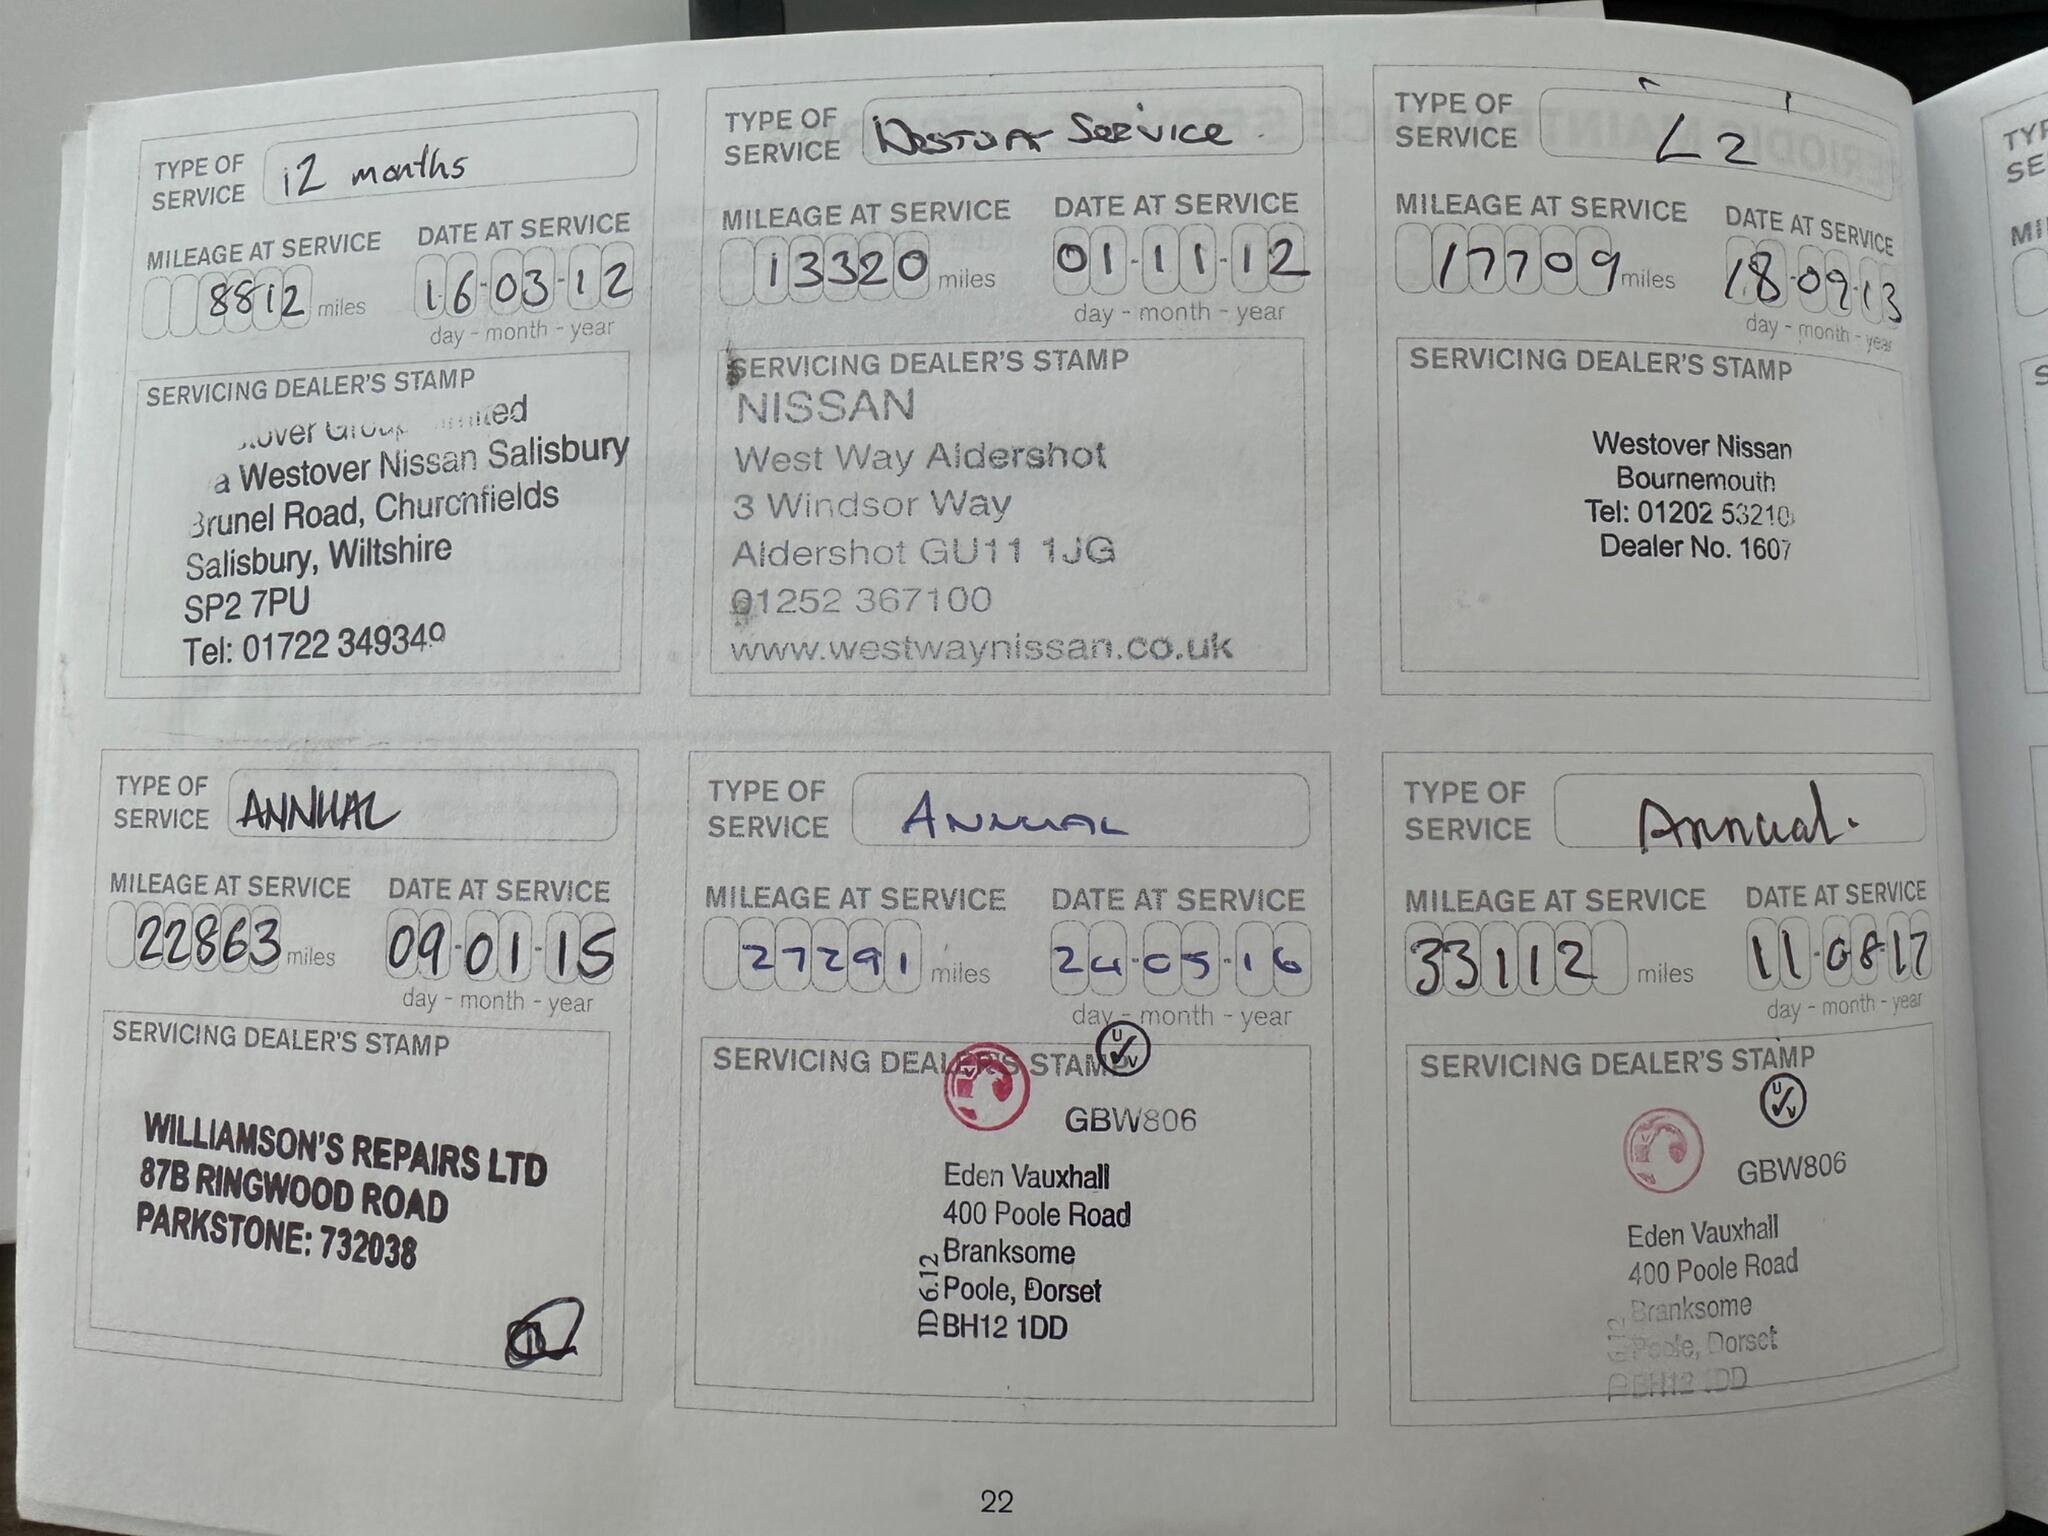 TYPE OF
SERVICE
12 months
MILEAGE AT SERVICE
8812 miles
DATE AT SERVICE
16-03-12
day - month - year
SERVICING DEALER'S STAMP
Westover Nissan Salisbury
Brunel Road, Churchfields
Salisbury, Wiltshire
SP2 7PU
Tel: 01722 349349
TYPE OF
SERVICE
Service
MILEAGE AT SERVICE
13320 miles
DATE AT SERVICE
01-11-12
day - month - year
SERVICING DEALER'S STAMP
NISSAN
West Way Aldershot
3 Windsor Way
Aldershot GU11 1JG
01252 367100
www.westwaynissan.co.uk
TYPE OF
SERVICE
L2
MILEAGE AT SERVICE
17709 miles
DATE AT SERVICE
18-09-13
day - month - year
SERVICING DEALER'S STAMP
Westover Nissan
Bournemouth
Tel: 01202
Dealer No. 1607
TYPE OF
SERVICE
ANNUAL
MILEAGE AT SERVICE
22863 miles
DATE AT SERVICE
09-01-15
day - month - year
SERVICING DEALER'S STAMP
WILLIAMSON'S REPAIRS LTD
87B RINGWOOD ROAD
PARKSTONE: 732038
TYPE OF
SERVICE
ANNUAL
MILEAGE AT SERVICE
27291 miles
DATE AT SERVICE
24-05-16
day - month - year
SERVICING DEALER'S STAMP
GBW806
Eden Vauxhall
400 Poole Road
Branksome
Poole, Dorset
BH12 1DD
ID 6.12
TYPE OF
SERVICE
Annual.
MILEAGE AT SERVICE
33112 miles
DATE AT SERVICE
11-08-17
day - month - year
SERVICING DEALER'S STAMP
GBW806
Eden Vauxhall
400 Poole Road
Branksome
Poole, Dorset
BH12 1DD
22